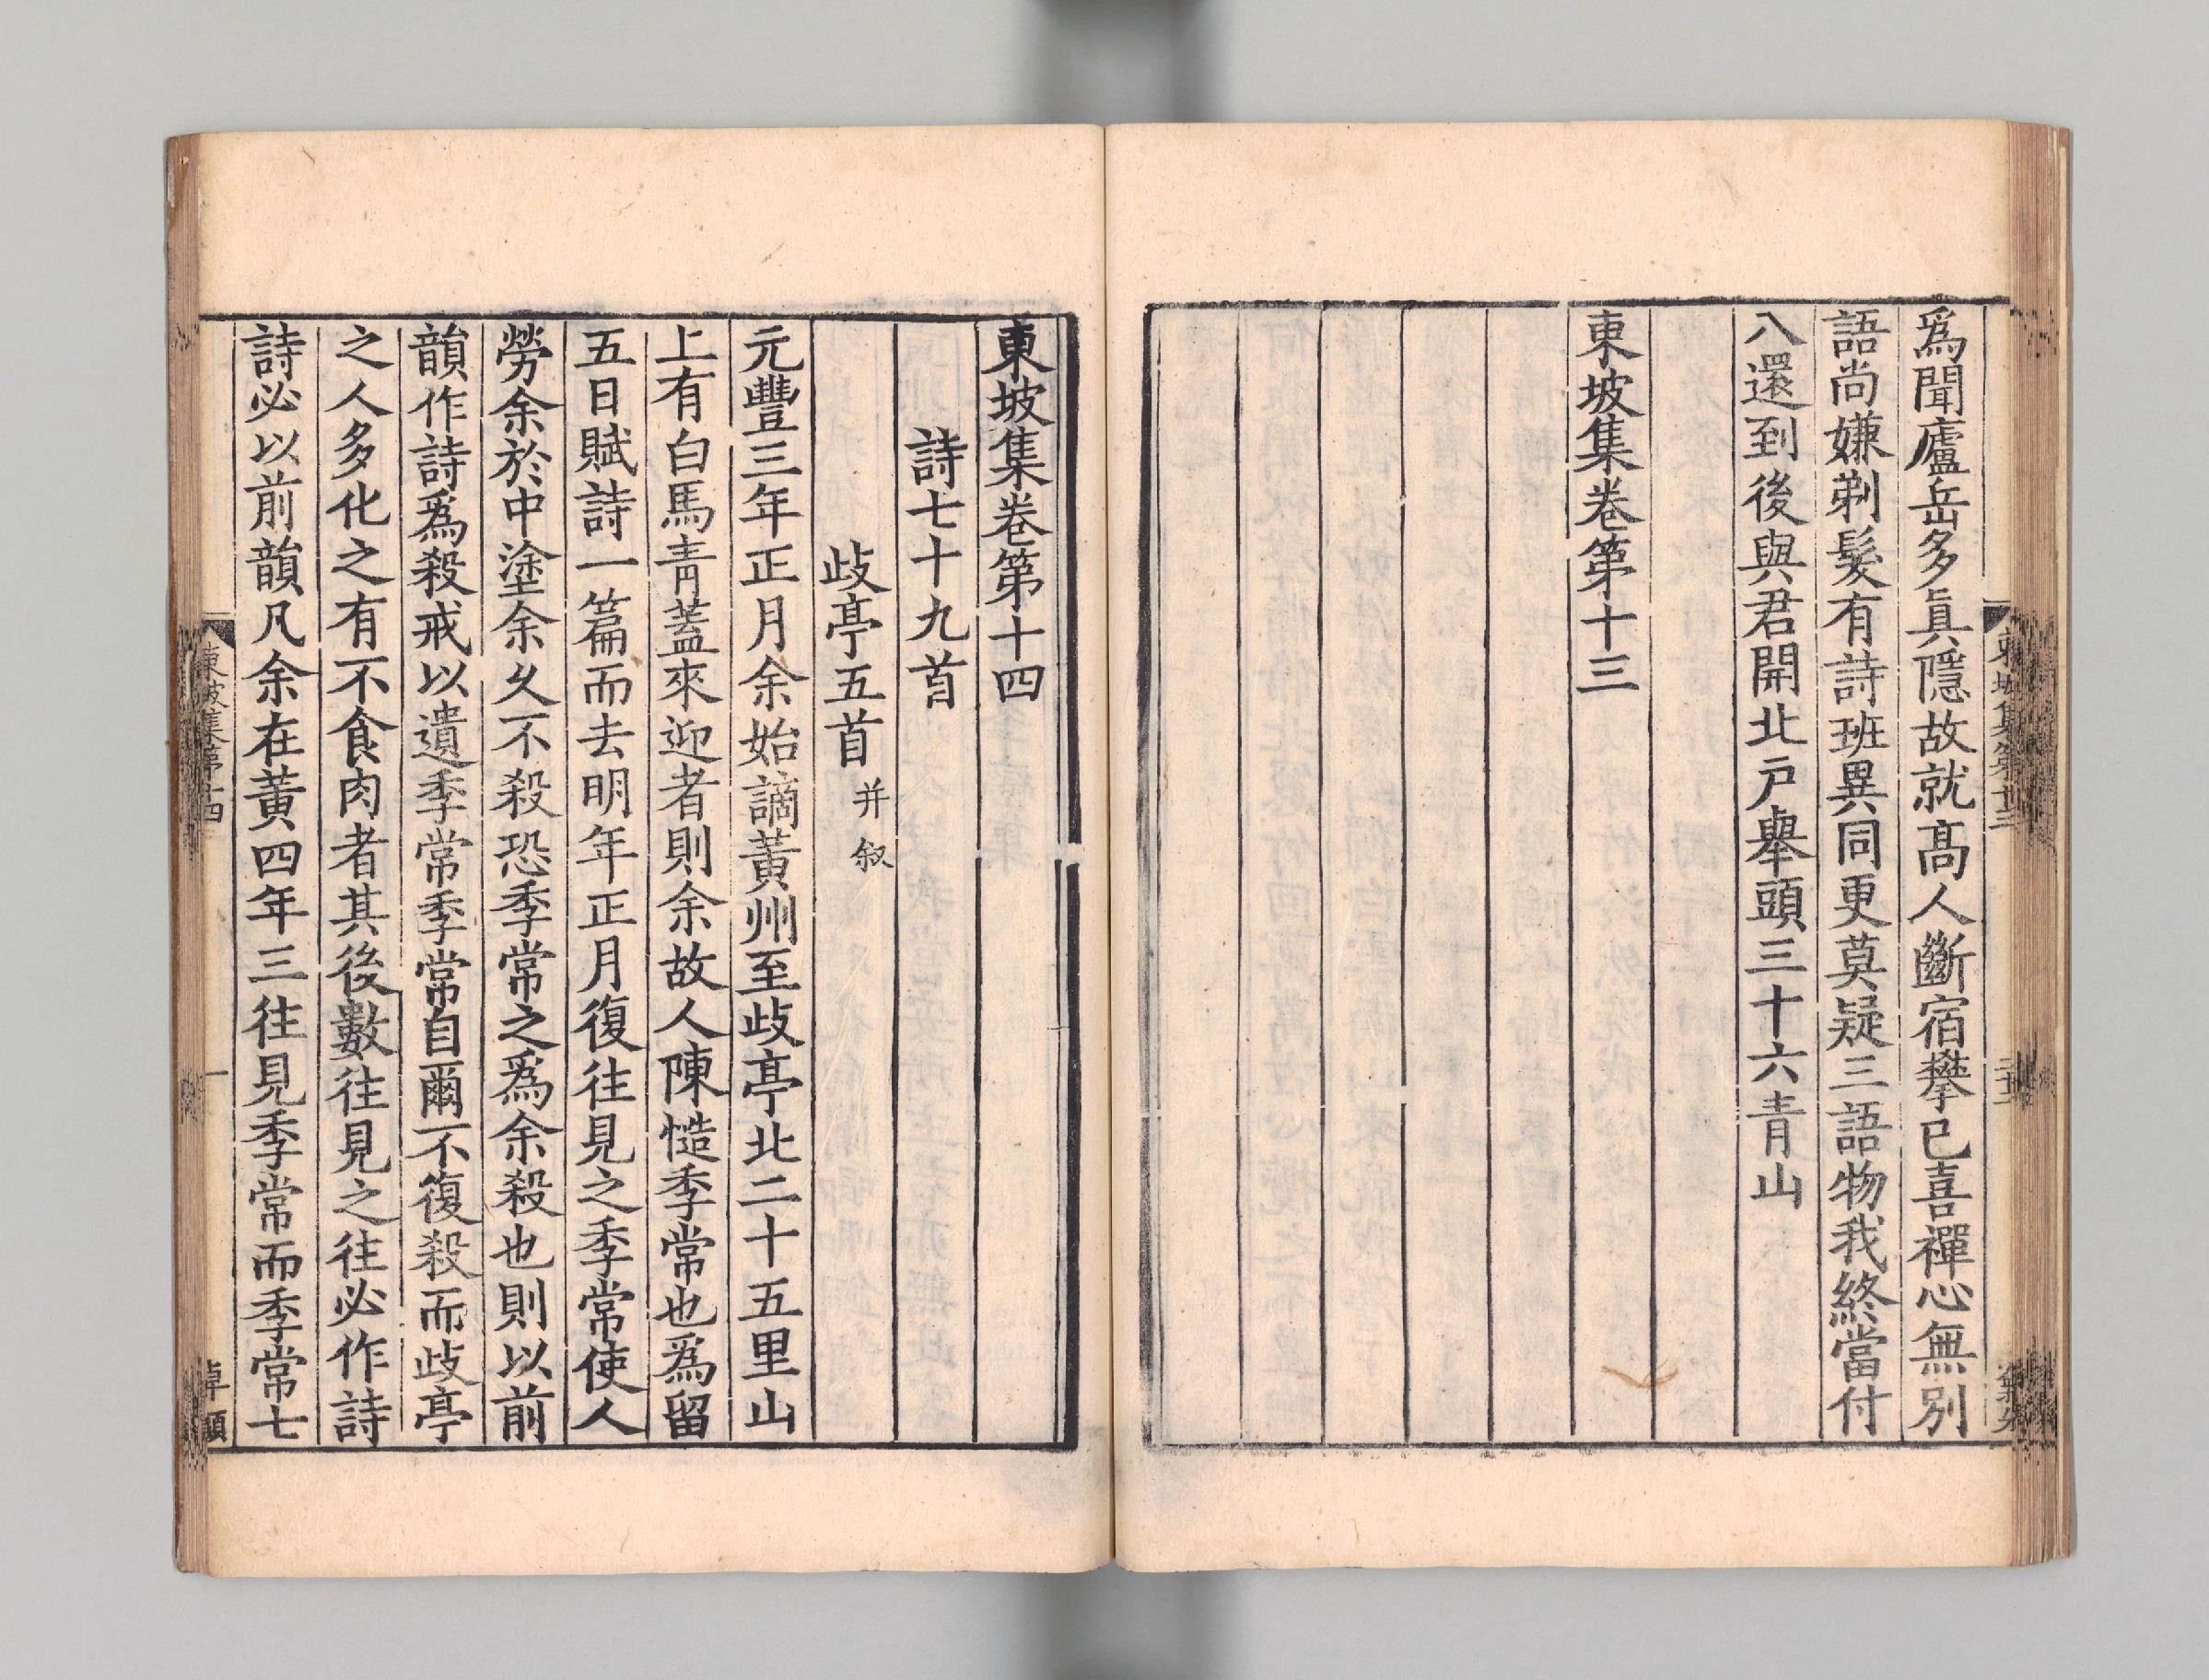 爲聞廬岳多眞隱故就髙人斷宿攀已喜禪心無别
語尚嫌剃髮有詩班異同更莫疑三語物我終當付
八還到後與君開北戸舉頭三十六青山
東坡集卷第十三
東坡集卷第十四
詩七十九首
歧亭五首 并叙
元豐三年正月余始謫黃州至歧亭北二十五里山
上有白馬青蓋來迎者則余故人陳慥季常也爲留
五日賦詩一篇而去明年正月復往見之季常使人
勞余於中塗余久不殺恐季常之爲余殺也則以前
韻作詩爲殺戒以遺季常季常自爾不復殺而歧亭
之人多化之有不食肉者其後數往見之往必作詩
詩必以前韻凡余在黃四年三往見季常而季常七
東坡集第十四
一